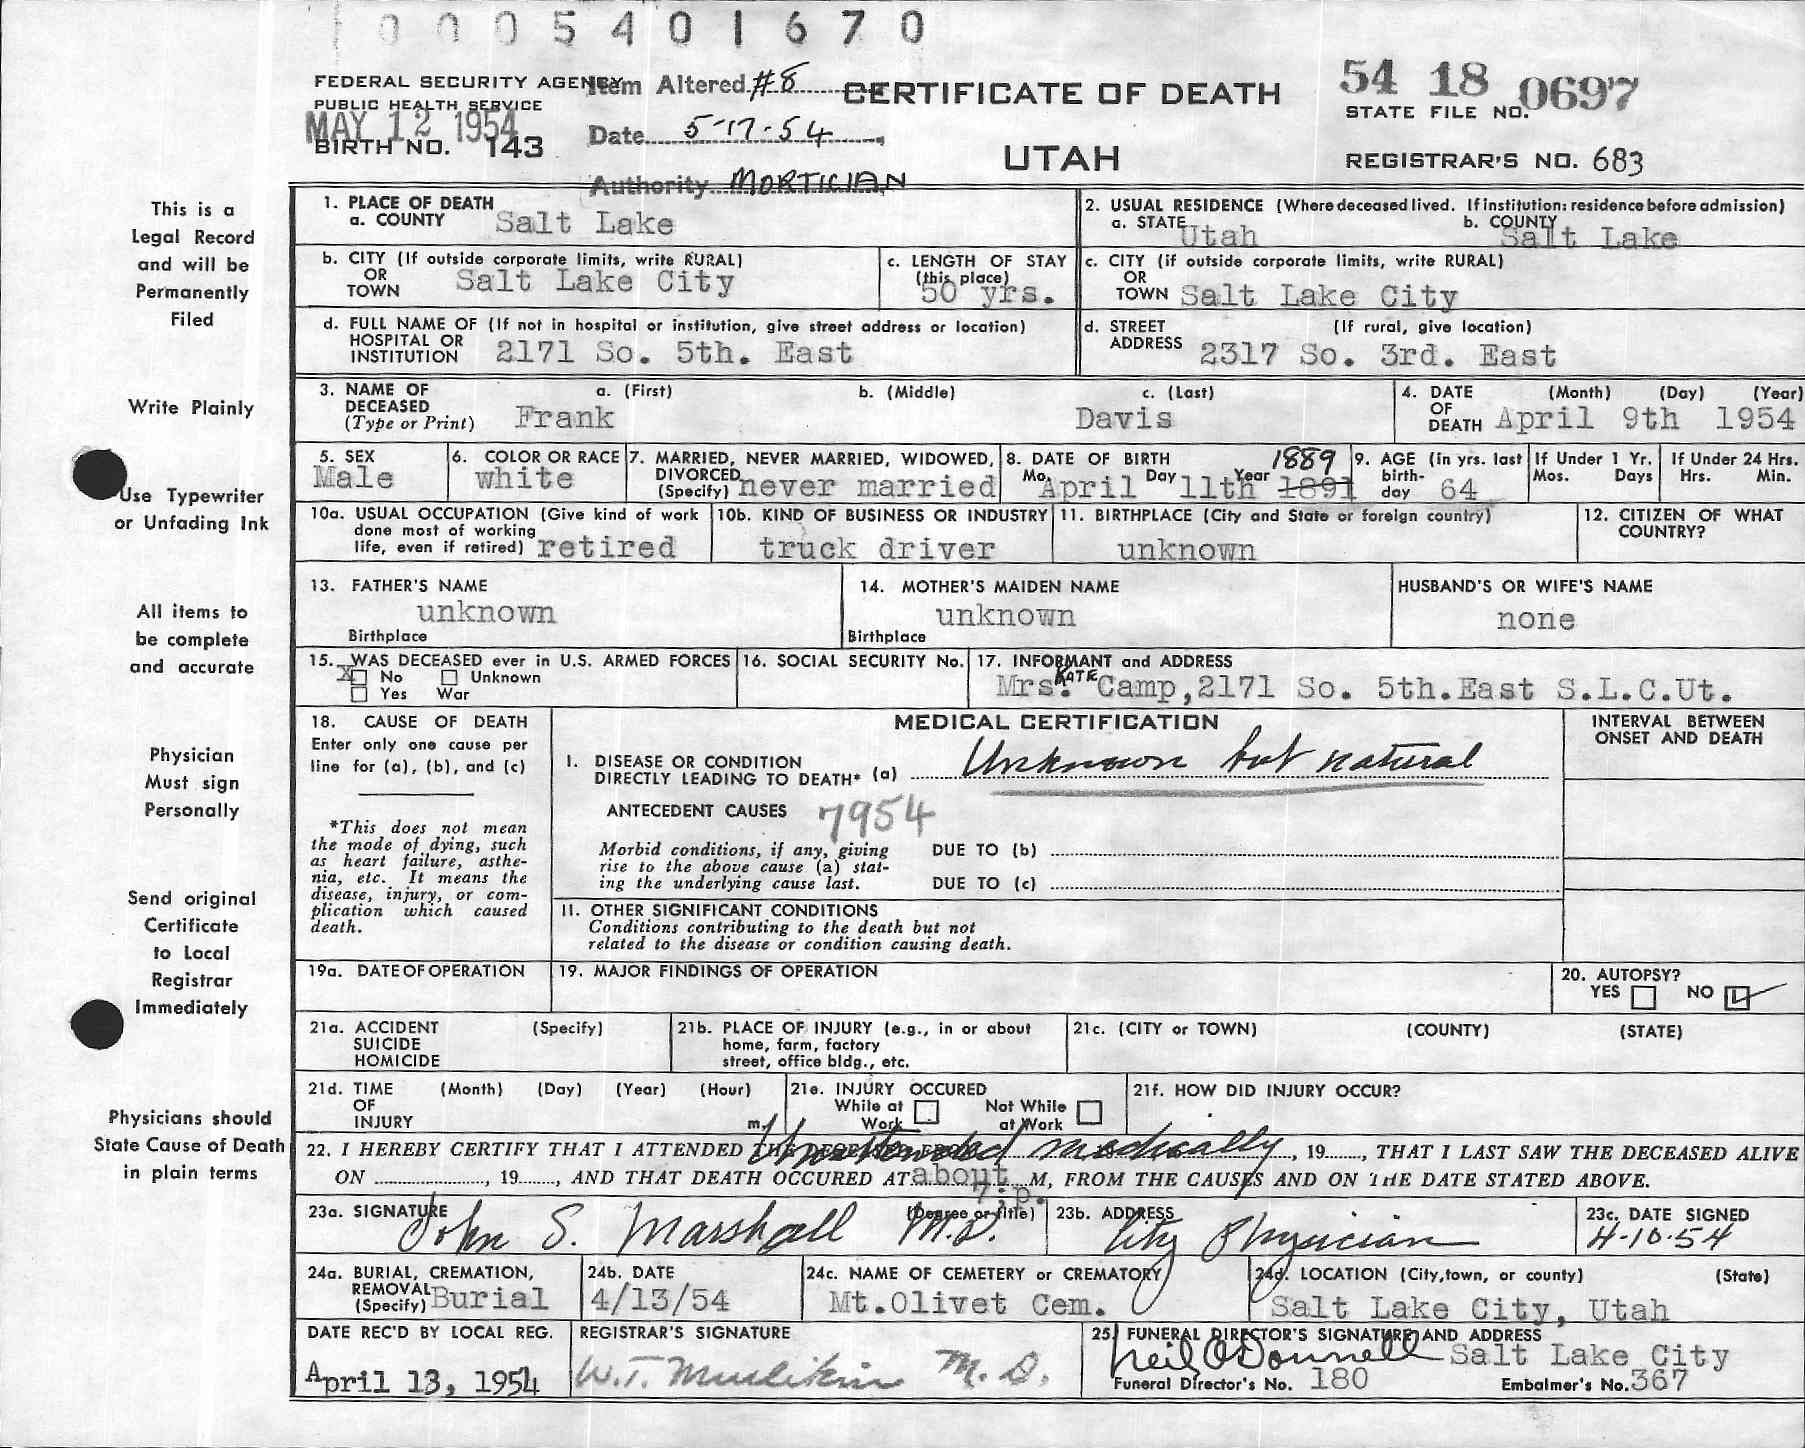 0005401670
FEDERAL SECURITY AGENCY
PUBLIC HEALTH SERVICE
MAY 12 1954
BIRTH NO. 143
Item Altered #8
Date 5-17-54
Authority MORTICIAN
CERTIFICATE OF DEATH
UTAH
54 18 0697
STATE FILE NO.
REGISTRAR'S NO. 683
This is a
Legal Record
and will be
Permanently
Filed
Write Plainly
Use Typewriter
or Unfading Ink
All items to
be complete
and accurate
Physician
Must sign
Personally
Send original
Certificate
to Local
Registrar
Immediately
Physicians should
State Cause of Death
in plain terms
1. PLACE OF DEATH
a. COUNTY Salt Lake
2. USUAL RESIDENCE (Where deceased lived. If institution: residence before admission)
a. STATE Utah b. COUNTY Salt Lake
b. CITY (If outside corporate limits, write RURAL)
OR
TOWN Salt Lake City
c. LENGTH OF STAY
(this place)
50 yrs.
c. CITY (if outside corporate limits, write RURAL)
OR
TOWN Salt Lake City
d. FULL NAME OF (If not in hospital or institution, give street address or location)
HOSPITAL OR
INSTITUTION 2171 So. 5th. East
d. STREET (If rural, give location)
ADDRESS 2317 So. 3rd. East
3. NAME OF a. (First) b. (Middle) c. (Last)
DECEASED
(Type or Print) Frank Davis
4. DATE (Month) (Day) (Year)
OF
DEATH April 9th 1954
5. SEX
Male
6. COLOR OR RACE
white
7. MARRIED, NEVER MARRIED, WIDOWED,
DIVORCED
(Specify) never married
8. DATE OF BIRTH 1889
Mo. April Day 11th Year 1891
9. AGE (in yrs. last
birth-
day 64
If Under 1 Yr.
Mos. Days
If Under 24 Hrs.
Hrs. Min.
10a. USUAL OCCUPATION (Give kind of work
done most of working
life, even if retired) retired
10b. KIND OF BUSINESS OR INDUSTRY
truck driver
11. BIRTHPLACE (City and State or foreign country)
unknown
12. CITIZEN OF WHAT
COUNTRY?
13. FATHER'S NAME
unknown
Birthplace
14. MOTHER'S MAIDEN NAME
unknown
Birthplace
HUSBAND'S OR WIFE'S NAME
none
15. WAS DECEASED ever in U.S. ARMED FORCES
X No Unknown
Yes War
16. SOCIAL SECURITY No.
17. INFORMANT and ADDRESS
Mrs. KATE Camp, 2171 So. 5th. East S.L.C.Ut.
18. CAUSE OF DEATH
Enter only one cause per
line for (a), (b), and (c)
*This does not mean
the mode of dying, such
as heart failure, asthe-
nia, etc. It means the
disease, injury, or com-
plication which caused
death.
MEDICAL CERTIFICATION
I. DISEASE OR CONDITION
DIRECTLY LEADING TO DEATH* (a) Unknown but natural
ANTECEDENT CAUSES 7954
Morbid conditions, if any, giving
rise to the above cause (a) stat-
ing the underlying cause last.
DUE TO (b)
DUE TO (c)
II. OTHER SIGNIFICANT CONDITIONS
Conditions contributing to the death but not
related to the disease or condition causing death.
INTERVAL BETWEEN
ONSET AND DEATH
19a. DATE OF OPERATION
19. MAJOR FINDINGS OF OPERATION
20. AUTOPSY?
YES NO
21a. ACCIDENT (Specify)
SUICIDE
HOMICIDE
21b. PLACE OF INJURY (e.g., in or about
home, farm, factory
street, office bldg., etc.
21c. (CITY or TOWN) (COUNTY) (STATE)
21d. TIME (Month) (Day) (Year) (Hour)
OF
INJURY m.
21e. INJURY OCCURED
While at Work Not While at Work
21f. HOW DID INJURY OCCUR?
22. I HEREBY CERTIFY THAT I ATTENDED THE DECEASED FROM Unattended medically, 19......, THAT I LAST SAW THE DECEASED ALIVE
ON ..........., 19......, AND THAT DEATH OCCURED AT about 7:p. M, FROM THE CAUSES AND ON THE DATE STATED ABOVE.
23a. SIGNATURE (Degree or title)
John S. Marshall M.D.
23b. ADDRESS
City Physician
23c. DATE SIGNED
4-10-54
24a. BURIAL, CREMATION,
REMOVAL
(Specify) Burial
24b. DATE
4/13/54
24c. NAME OF CEMETERY or CREMATORY
Mt.Olivet Cem.
24d. LOCATION (City, town, or county) (State)
Salt Lake City, Utah
DATE REC'D BY LOCAL REG.
April 13, 1954
REGISTRAR'S SIGNATURE
W.T. M. D.
25. FUNERAL DIRECTOR'S SIGNATURE AND ADDRESS
Neil O'Donnell Salt Lake City
Funeral Director's No. 180 Embalmer's No. 367